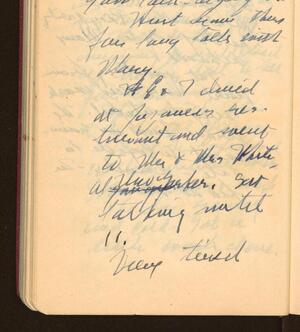 Went down there
for long talks with
Mary.
H.E & I dined
at Japanese res-
taurant and went
to Mr & Mrs White
at. Sat
talking until
11.
Very tired